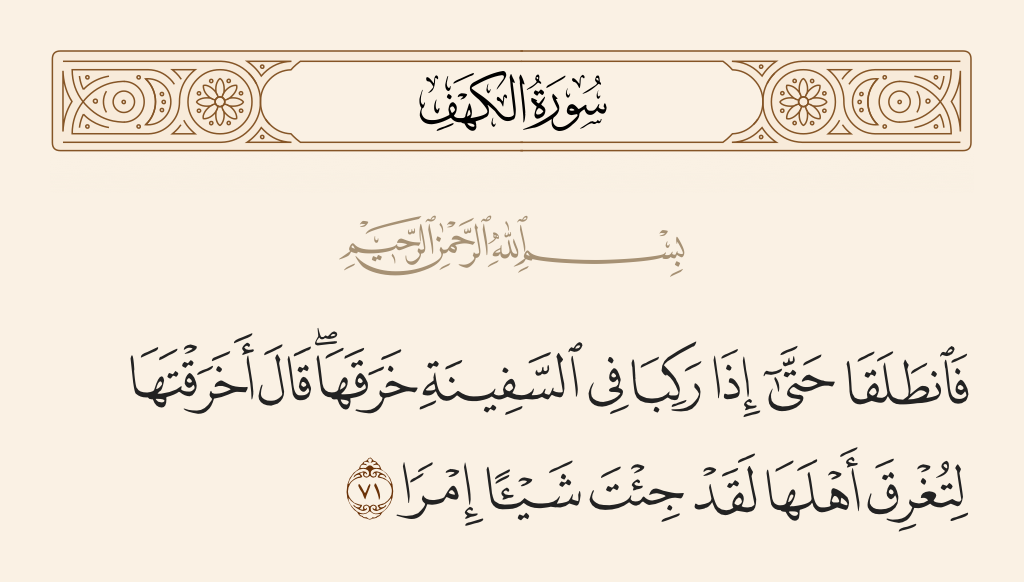 سُورَةُ الكَهْفِ
بِسْمِ ٱللَّهِ ٱلرَّحْمَٰنِ ٱلرَّحِيمِ
فَٱنطَلَقَا حَتَّىٰٓ إِذَا رَكِبَا فِى ٱلسَّفِينَةِ خَرَقَهَا ۖ قَالَ أَخَرَقْتَهَا
لِتُغْرِقَ أَهْلَهَا لَقَدْ جِئْتَ شَيْـًٔا إِمْرًا ٧١